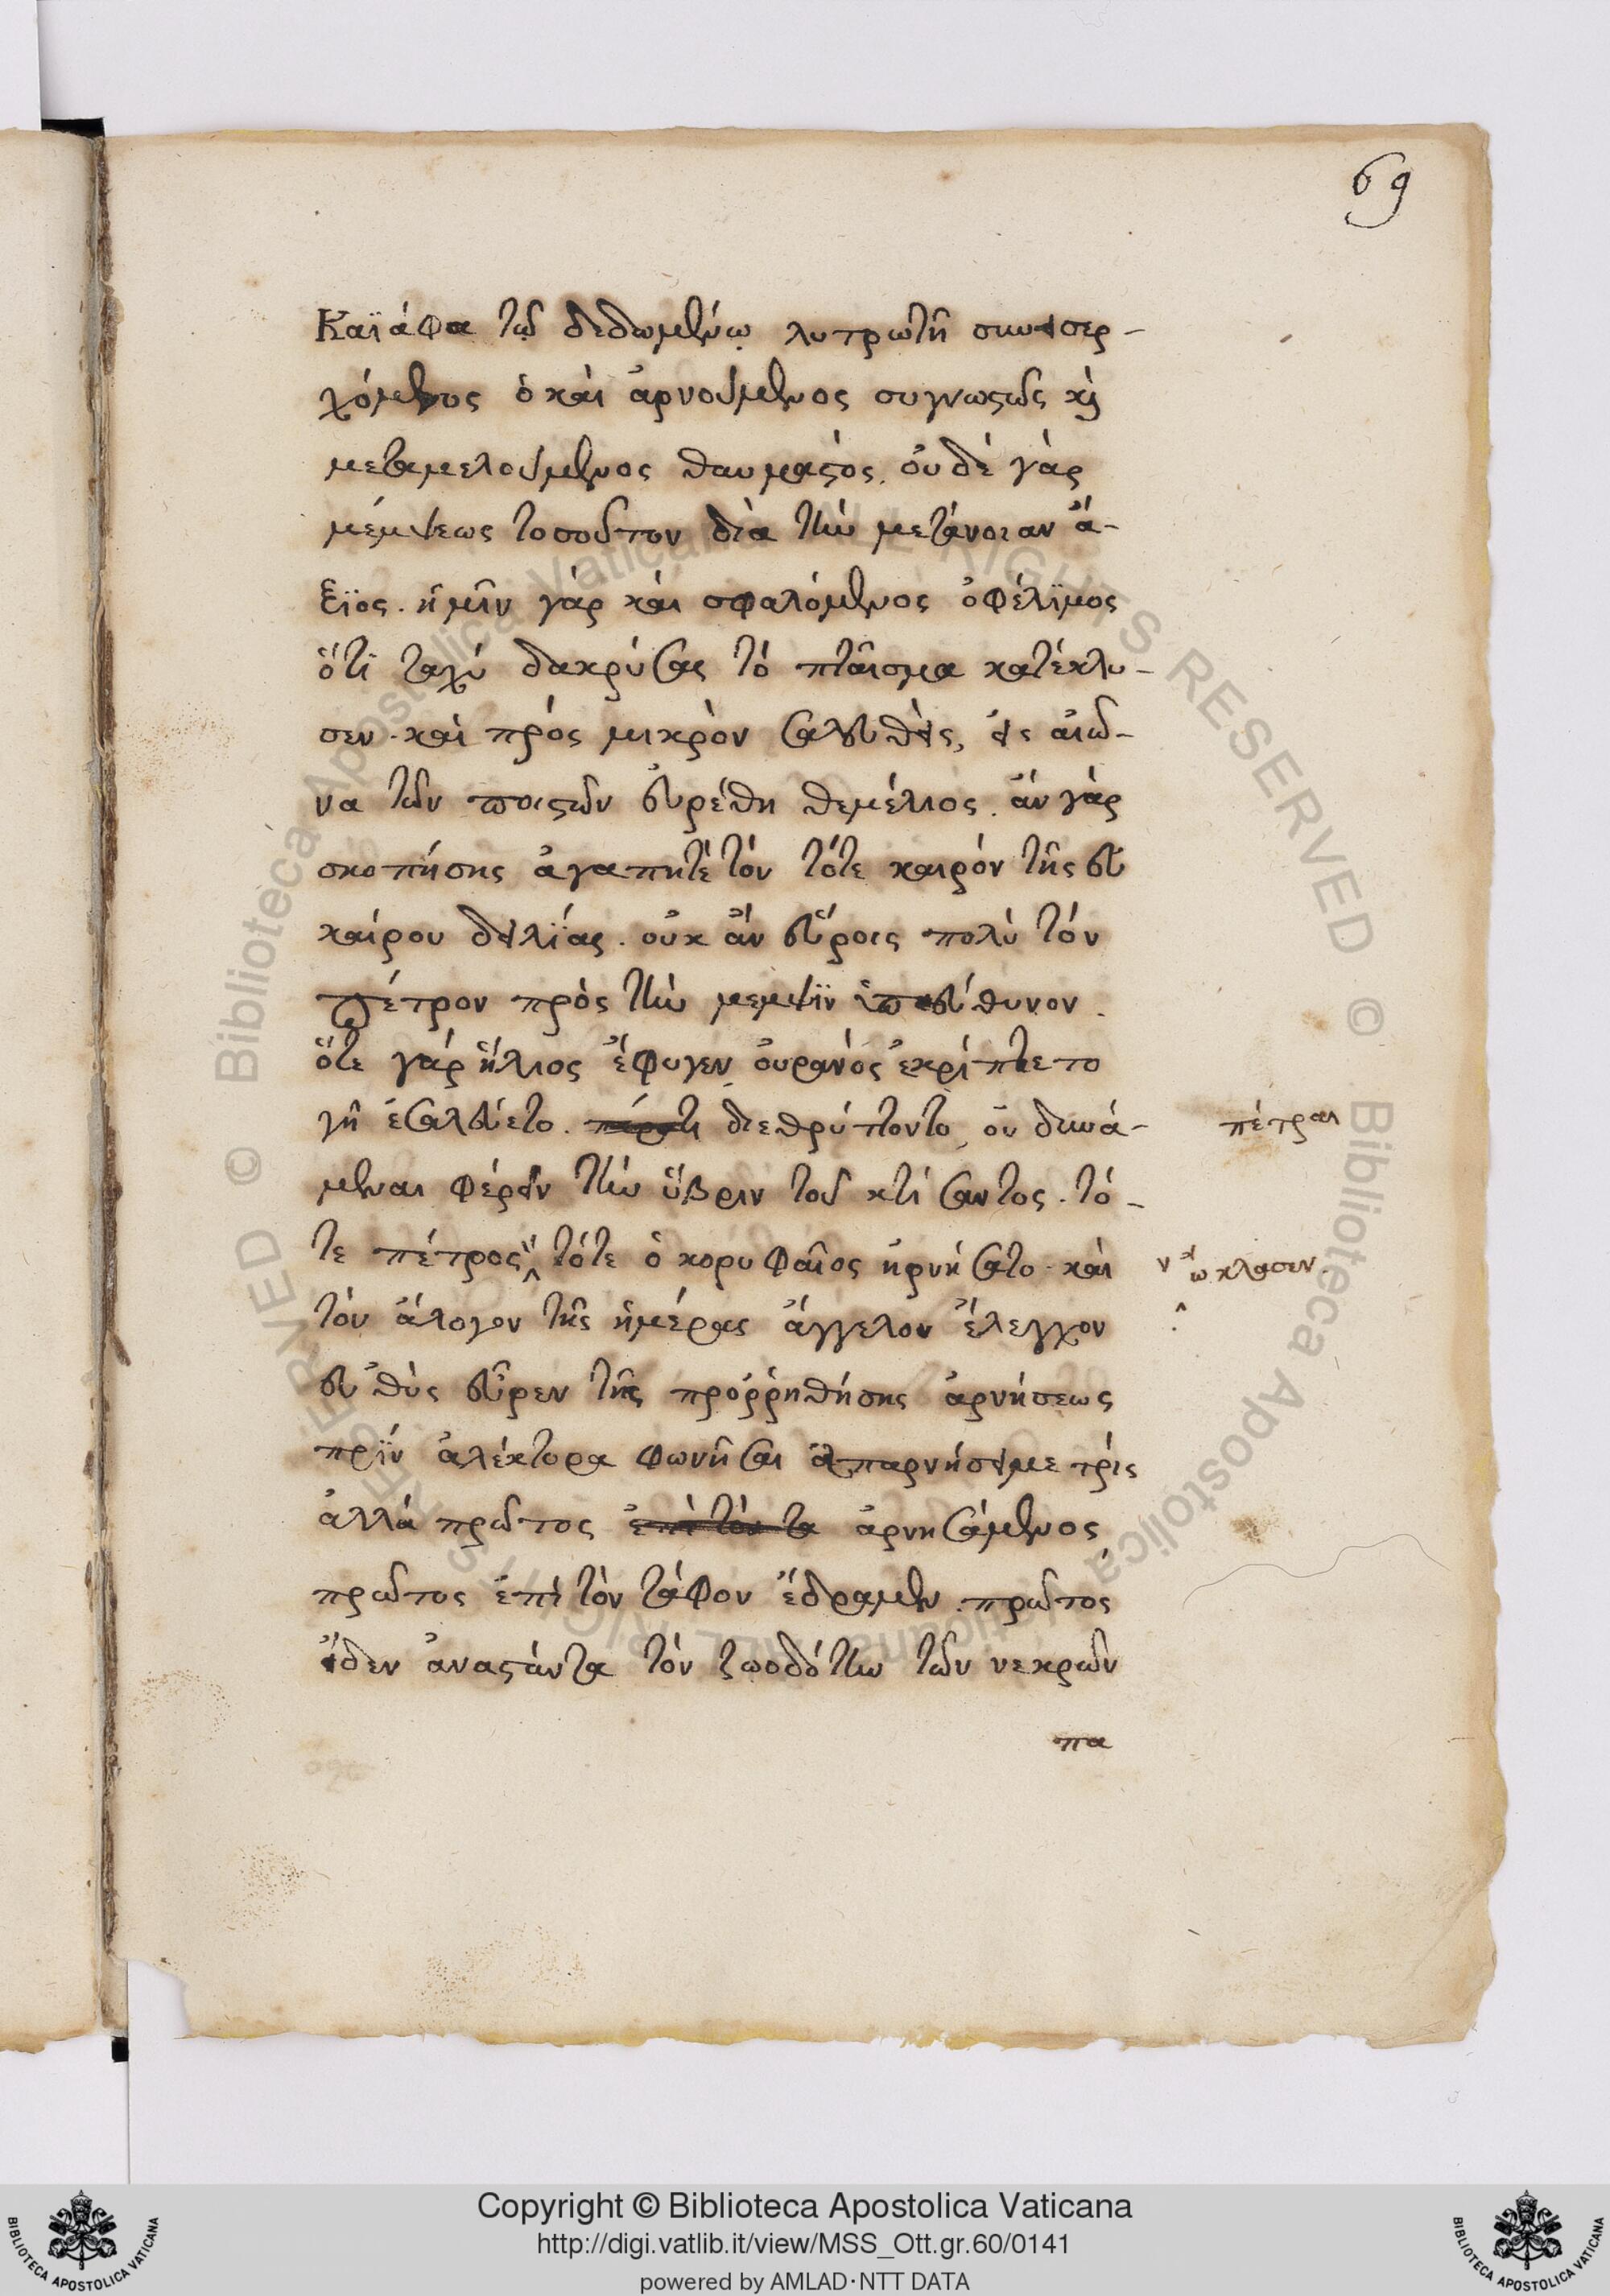 69
Καϊάφα τῷ δεδωμένῳ λυτρωτῆ συνεισερ-
χόμενος ὁ καὶ ἀρνούμενος συγνωστῶς κὶ
μεταμελούμενος θαυμαστός. οὐδὲ γὰρ
μέμψεως τοσοῦτον διὰ τὴν μετάνοιαν ἄ-
ξϊος. ἡμῖν γὰρ καὶ σφαλόμενος ὀφέλϊμος
ὅτϊ ταχὺ δακρύσας τὸ πταῖσμα κατέκλυ-
σεν. καὶ πρὸς μικρὸν σαλευθεὶς, εἰς αἰῶ-
να τῶν πιστῶν εὑρέθη θεμέλιος. ἂν γὰρ
σκοπήσης ἀγαπητὲ τὸν τότε καιρὸν τῆς εὐ
καίρου δειλΐας. οὐκ ἂν εὕροις πολὺ τὸν
Πέτρον πρὸς τὴν μεμψϊν ὑπεύθυνον.
ὅτε γὰρ ἥλιος ἔφυγεν οὐρανὸς ἐκρίπτετο
γῆ ἐσαλεύετο. διεθρύπτοντο, οὐ δυνά-
πέτραι
μεναι φέρειν τὴν ὕβριν τοῦ κτίσαντος. τό-
τε πέτρος τότε ὁ κορυφαῖος ἠρνήσατο. καὶ
ὤκλασεν.
τὸν ἄλογον τῆς ἡμέρας ἄγγελον ἔλεγχον
εὐθὺς εὗρεν τῆς προῤῥηθήσης ἀρνήσεως
πρϊν ἀλέκτορα φωνῆσαι ἀπαρνήσει με τρίς
ἀλλὰ πρῶτος ἐπὶ τὸν τα ἀρνησάμενος
πρῶτος ἐπὶ τὸν τάφον ἔδραμεν. πρῶτος
εἶδεν ἀναστάντα τὸν ζωοδότην τῶν νεκρῶν
πα
Copyright © Biblioteca Apostolica Vaticana
http://digi.vatlib.it/view/MSS_Ott.gr.60/0141
powered by AMLAD·NTT DATA
BIBLIOTECA APOSTOLICA VATICANA
BIBLIOTECA APOSTOLICA VATICANA
© Biblioteca Apostolica Vaticana ALL RIGHTS RESERVED
© Biblioteca Apostolica Vaticana ALL RIGHTS RESERVED